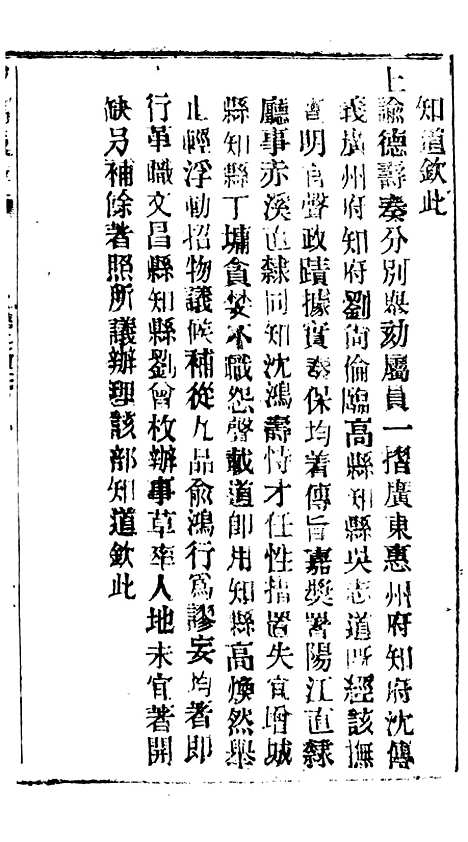 知道欽此
上諭德壽奏分別舉劾屬員一摺廣東惠州府知府沈傳
義廣州府知府劉尙倫臨高縣知縣吳志道旣經該撫
臚明官聲政蹟據實奏保均着傳旨嘉獎署陽江直隸
廳事赤溪直隸同知沈鴻壽恃才任性措置失宜增城
縣知縣丁墉貪婪不職怨聲載道卽用知縣高煥然舉
止輕浮動招物議候補從九品俞鴻行爲謬妄均著卽
行革職文昌縣知縣劉曾枚辦事草率人地未宜著開
缺另補餘著照所議辦理該部知道欽此